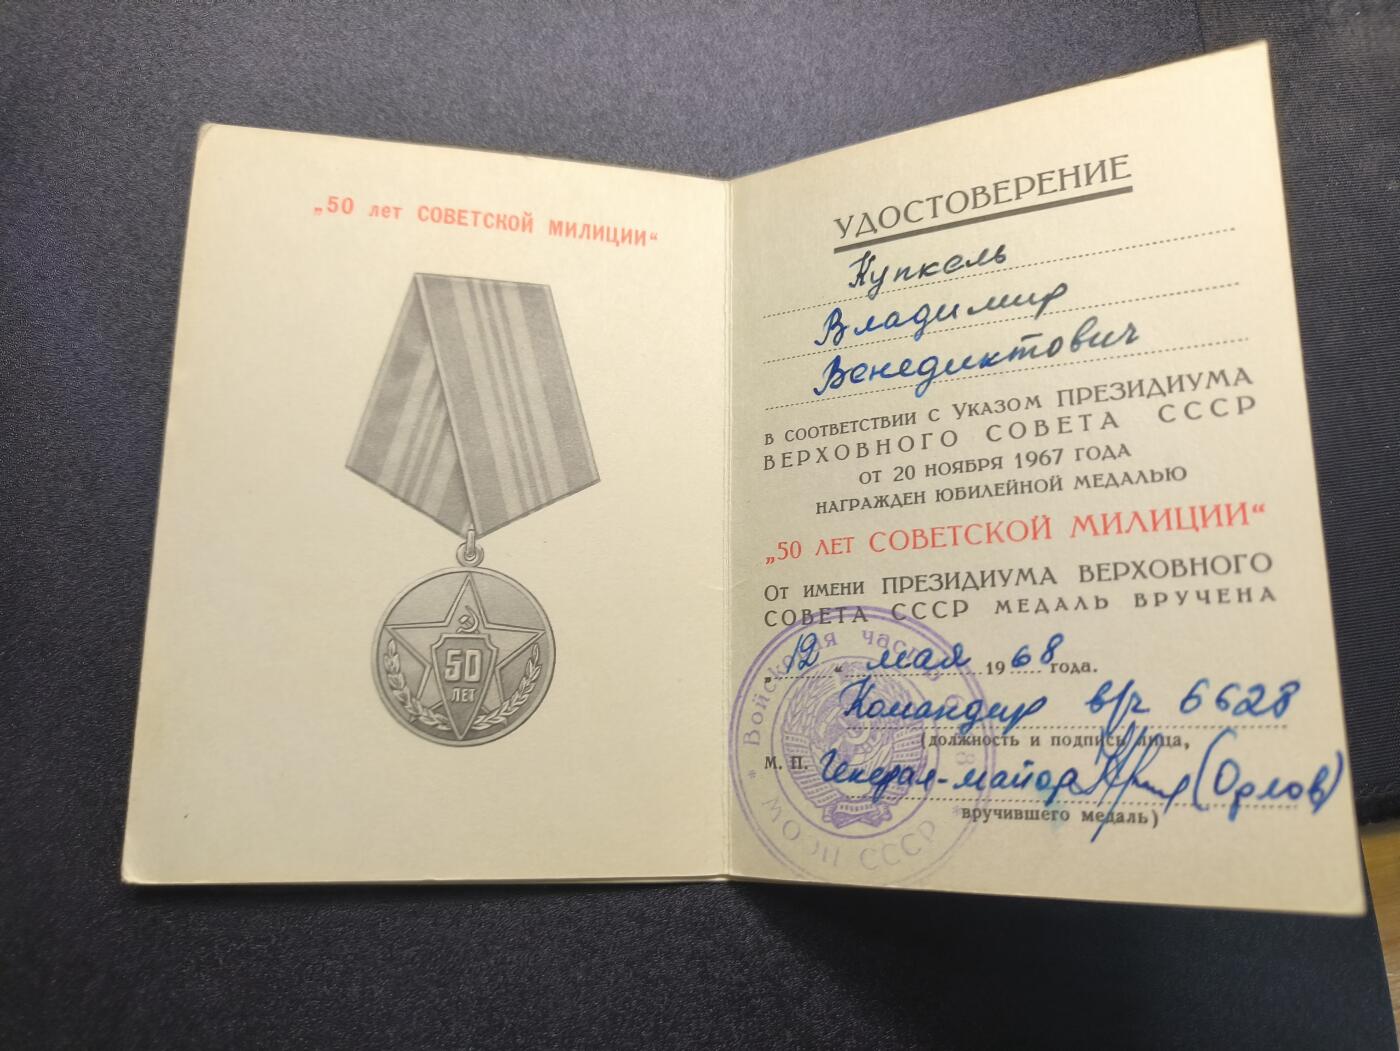 „50 лет СОВЕТСКОЙ МИЛИЦИИ“
50
ЛЕТ
УДОСТОВЕРЕНИЕ
Купкель
Владимир
Венедиктович
В СООТВЕТСТВИИ С УКАЗОМ ПРЕЗИДИУМА
ВЕРХОВНОГО СОВЕТА СССР
ОТ 20 НОЯБРЯ 1967 ГОДА
НАГРАЖДЕН ЮБИЛЕЙНОЙ МЕДАЛЬЮ
„50 ЛЕТ СОВЕТСКОЙ МИЛИЦИИ“
ОТ ИМЕНИ ПРЕЗИДИУМА ВЕРХОВНОГО
СОВЕТА СССР МЕДАЛЬ ВРУЧЕНА
„12“ мая 1968 года.
Командир в/ч 6628
(должность и подпись лица,
М. П. Генерал-майор (Орлов)
вручившего медаль)
* Войсковая часть 6628 *
МООП СССР